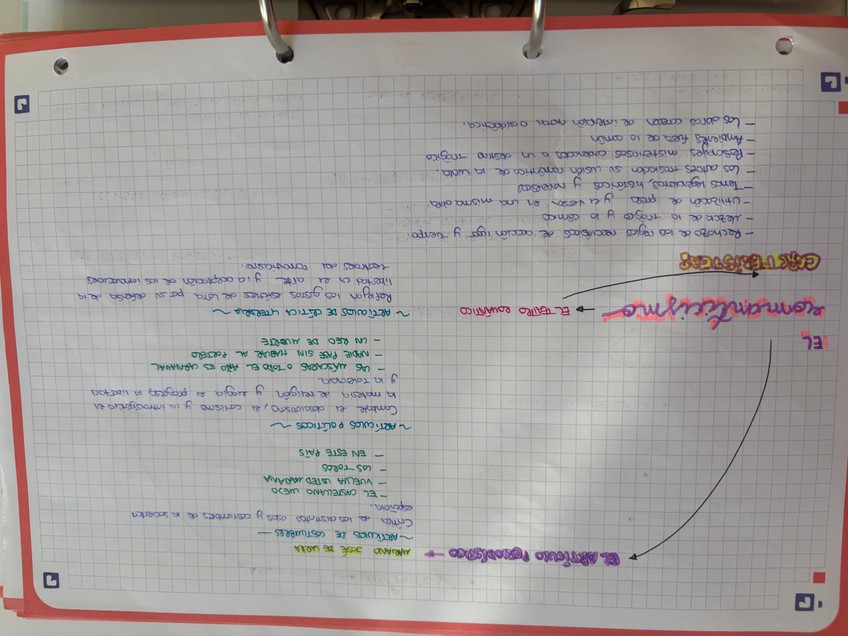 EL ARTÍCULO PERIODÍSTICO → MARIANO JOSÉ DE LARRA
~ARTÍCULOS DE COSTUMBRES~
Critica de los distintos usos y costumbres de la sociedad
española.
- EL CASTELLANO VIEJO
- VUELVA USTED MAÑANA
- LOS TOROS
- EN ESTE PAÍS
~ARTÍCULOS POLÍTICOS~
Combate el absolutismo, el carlismo y la intransigencia en
la materia de religión y elogia el progreso, la libertad
y la tolerancia.
- LAS MÁSCARAS O TODO EL AÑO ES CARNAVAL
- NADIE PASE SIN HABLAR AL PORTERO
- UN REO DE MUERTE
~ARTÍCULOS DE CRÍTICA LITERARIA~
Reflejan los gustos estéticos de Larra por su defensa de la
libertad en el arte y la aceptación de las innovaciones
del romanticismo.
EL
romanticismo → EL TEATRO ROMÁNTICO
CARACTERÍSTICAS
- Rechazo de las reglas neoclásicas de acción lugar y tiempo.
- Mezcla de lo trágico y lo cómico
- Utilización de prosa y el verso en una misma obra
- Temas legendarios, históricos y novelescos
- Los autores trasladan su visión romántica de la vida.
- Personajes misteriosos condenados a un destino trágico
- Ambientes fuera de lo común
- Las obras carecen de intención moral o didáctica.